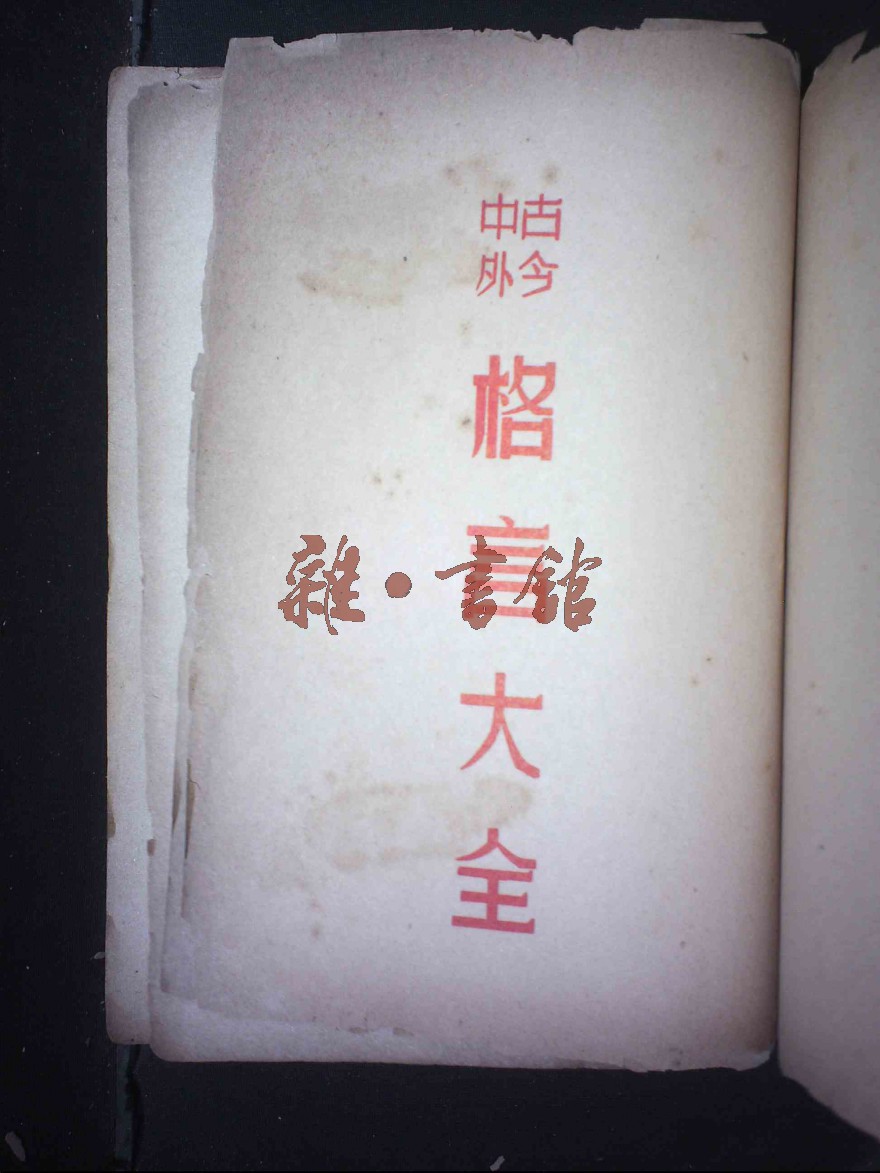 古今
中外
格言大全
雜·書館